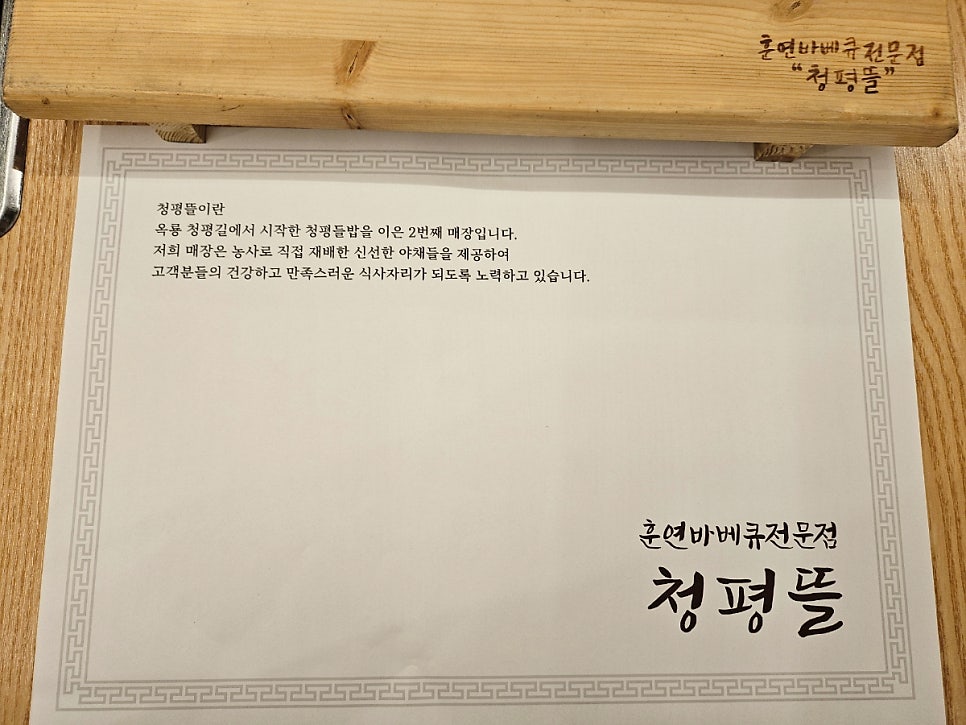 훈연바베큐전문점
“청평뜰”
청평뜰이란
옥룡 청평길에서 시작한 청평들밥을 이은 2번째 매장입니다.
저희 매장은 농사로 직접 재배한 신선한 야채들을 제공하여
고객분들의 건강하고 만족스러운 식사자리가 되도록 노력하고 있습니다.
훈연바베큐전문점
청평뜰